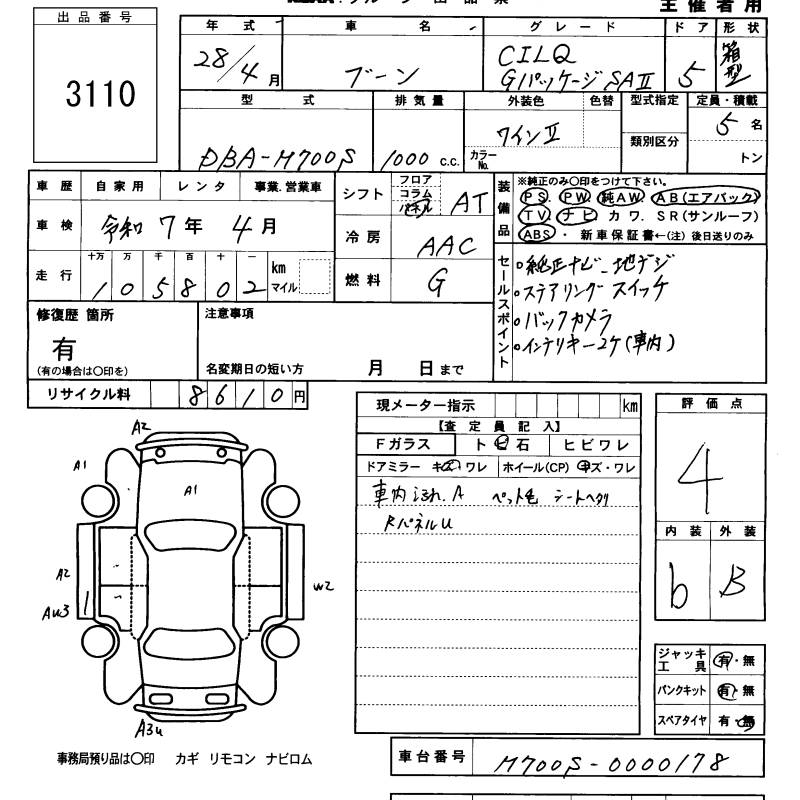 出品番号
3110
主催者用
年式 車名 グレード ドア 形状
28/4月 ブーン CILQ
Gパッケージ SAⅡ 5 箱型
型式 排気量 外装色 色替 型式指定 定員・積載
DBA-M700S 1000 c.c. ワインⅡ カラーNo. 類別区分 5名
トン
車歴 自家用 レンタ 事業.営業車
車検 令和 7年 4月
走行 十万 万 千 百 十 一
1 0 5 8 0 2 km マイル
シフト フロア コラム パネル AT
冷房 AAC
燃料 G
装備品 ※純正のみ〇印をつけて下さい。
PS. PW. 純AW. AB(エアバック)
TV. ナビ カワ. SR(サンルーフ)
ABS ・ 新車保証書←(注) 後日送りのみ
セールスポイント
○純正ナビ_地デジ
○ステアリングスイッチ
○バックカメラ
○インテリキー2ケ(車内)
修復歴 箇所
有
(有の場合は〇印を)
注意事項
名変期日の短い方 月 日まで
リサイクル料 8610円
現メーター指示 km
【査定員記入】
Fガラス トビ石 ヒビワレ
ドアミラー キズワレ ホイール(CP) キズ・ワレ
車内汚れ.A ペット毛 シートヘタリ
RパネルU
評価点
4
内装 外装
b B
ジャッキ 工具 有・無
パンクキット 有・無
スペアタイヤ 有・無
A2
A1
A1
A2
AU3
W2
A3U
事務局預り品は〇印 カギ リモコン ナビロム
車台番号 M700S-0000178